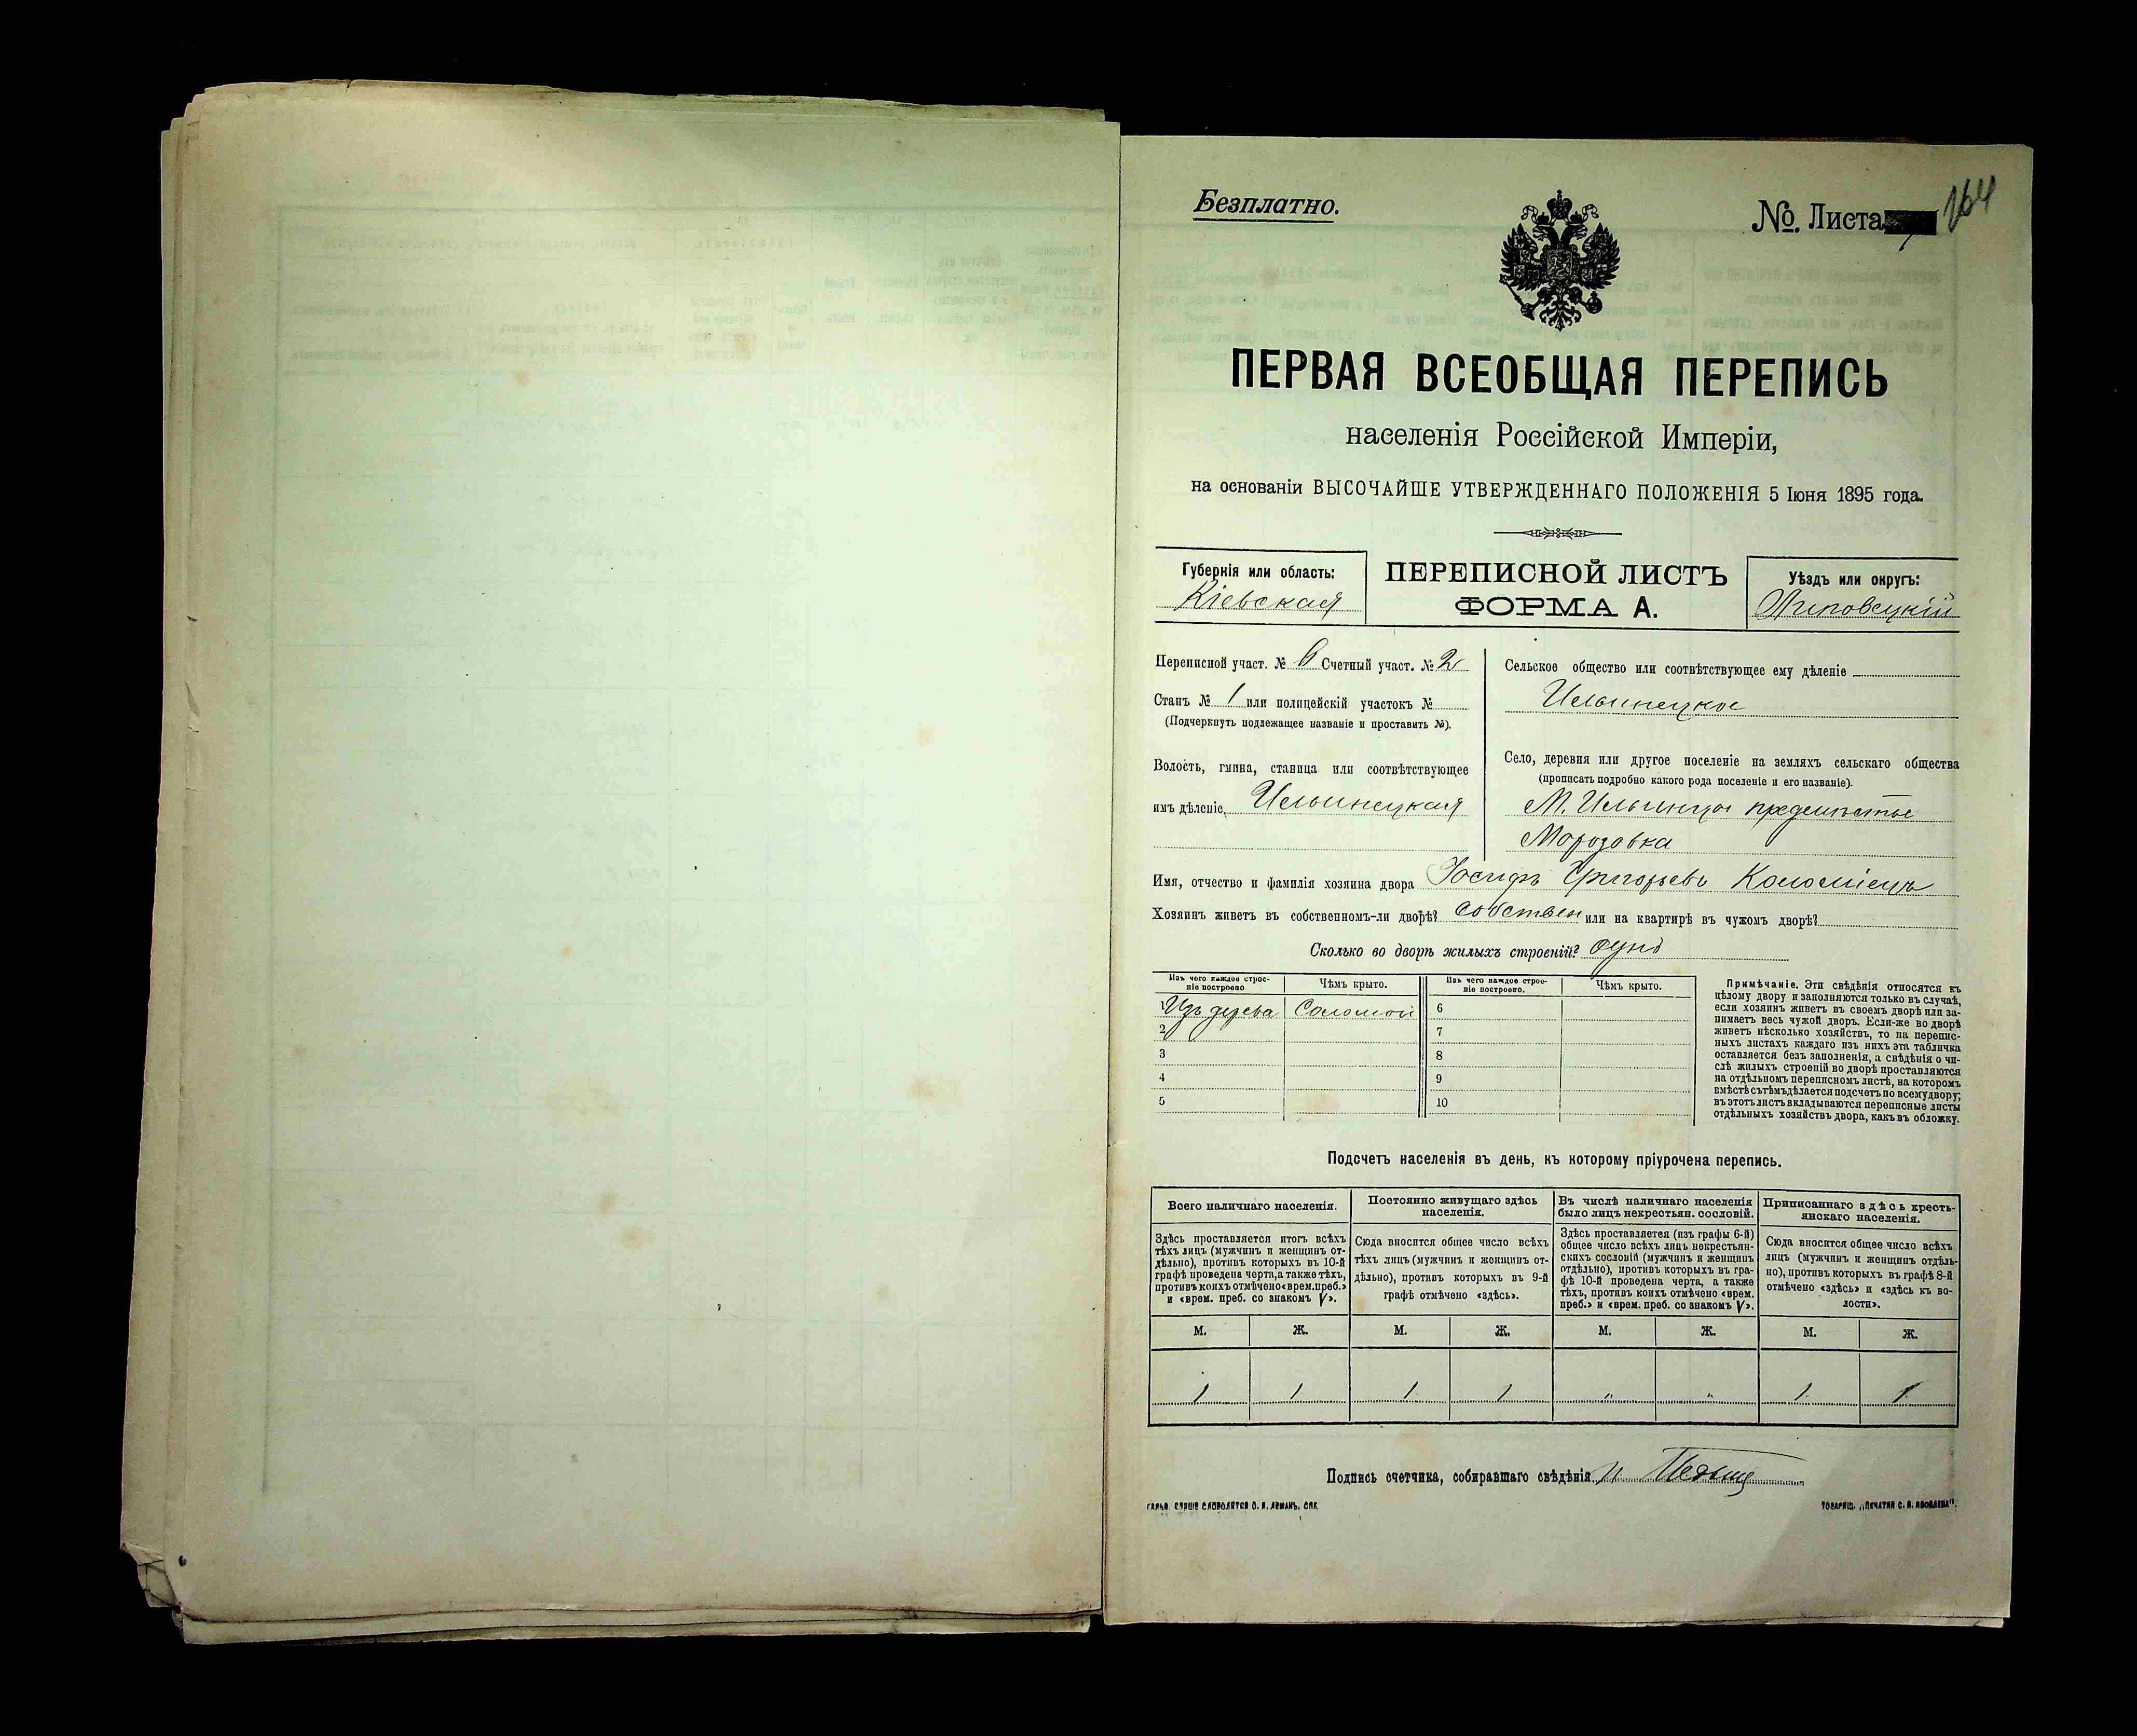 Безплатно.
№. Листа
164
ПЕРВАЯ ВСЕОБЩАЯ ПЕРЕПИСЬ
населенія Россійской Имперіи,
на основаніи ВЫСОЧАЙШЕ УТВЕРЖДЕННАГО ПОЛОЖЕНІЯ 5 Іюня 1895 года.
Губернія или область:
Кіевская
ПЕРЕПИСНОЙ ЛИСТЪ
ФОРМА А.
Уѣздъ или округъ:
Липовецкій
Переписной участ. № 6 Счетный участ. № 2
Станъ № 1 или полицейскій участокъ №
(Подчеркнуть подлежащее названіе и проставить №).
Волость, гмина, станица или соотвѣтствующее
имъ дѣленіе, Ильинецкая
Сельское общество или соотвѣтствующее ему дѣленіе
Ильинецкое
Село, деревня или другое поселеніе на земляхъ сельскаго общества
(прописать подробно какого рода поселеніе и его названіе).
М. Ильинцы предмѣстье
Морозовка
Имя, отчество и фамилія хозяина двора Іосифъ Григорьевъ Коломіецъ
Хозяинъ живетъ въ собственномъ-ли дворѣ? собствен или на квартирѣ въ чужомъ дворѣ?
Сколько во дворѣ жилыхъ строеній? одно
Изъ чего каждое строе-
ніе построено
Чѣмъ крыто.
Изъ чего каждое строе-
ніе построено.
Чѣмъ крыто.
1 Изъ дерева Соломой 6
2 7
3 8
4 9
5 10
Примѣчаніе. Эти свѣдѣнія относятся къ
цѣлому двору и заполняются только въ случаѣ,
если хозяинъ живетъ въ своемъ дворѣ или за-
нимаетъ весь чужой дворъ. Если-же во дворѣ
живетъ нѣсколько хозяйствъ, то на перепис-
ныхъ листахъ каждаго изъ нихъ эта табличка
оставляется безъ заполненія, а свѣдѣнія о чи-
слѣ жилыхъ строеній во дворѣ проставляются
на отдѣльномъ переписномъ листѣ, на которомъ
вмѣстѣ съ тѣмъ дѣлается подсчетъ по всему двору;
въ этотъ листъ вкладываются переписные листы
отдѣльныхъ хозяйствъ двора, какъ въ обложку.
Подсчетъ населенія въ день, къ которому пріурочена перепись.
Всего наличнаго населенія.
Здѣсь проставляется итогъ всѣхъ
тѣхъ лицъ (мужчинъ и женщинъ от-
дѣльно), противъ которыхъ въ 10-й
графѣ проведена черта, а также тѣхъ,
противъ коихъ отмѣчено «врем. преб.»
и «врем. преб. со знакомъ V».
Постоянно живущаго здѣсь
населенія.
Сюда вносится общее число всѣхъ
тѣхъ лицъ (мужчинъ и женщинъ от-
дѣльно), противъ которыхъ въ 9-й
графѣ отмѣчено «здѣсь».
Въ числѣ наличнаго населенія
было лицъ некрестьян. сословій.
Здѣсь проставляется (изъ графы 6-й)
общее число всѣхъ лицъ некрестьян-
скихъ сословій (мужчинъ и женщинъ
отдѣльно), противъ которыхъ въ гра-
фѣ 10-й проведена черта, а также
тѣхъ, противъ коихъ отмѣчено «врем.
преб.» и «врем. преб. со знакомъ V».
Приписаннаго здѣсь кресть-
янскаго населенія.
Сюда вносится общее число всѣхъ
лицъ (мужчинъ и женщинъ отдѣль-
но), противъ которыхъ въ графѣ 8-й
отмѣчено «здѣсь» и «здѣсь къ во-
лости».
М. Ж. М. Ж. М. Ж. М. Ж.
1 1 1 1 " " 1 1
Подпись счетчика, собиравшаго свѣдѣнія
ГАЛЬВ. КЛИШЕ СЛОВОЛИТНИ О. И. ЛЕМАНЪ, СПБ.
ТОВАРИЩ. „ПЕЧАТНЯ С. П. ЯКОВЛЕВА".